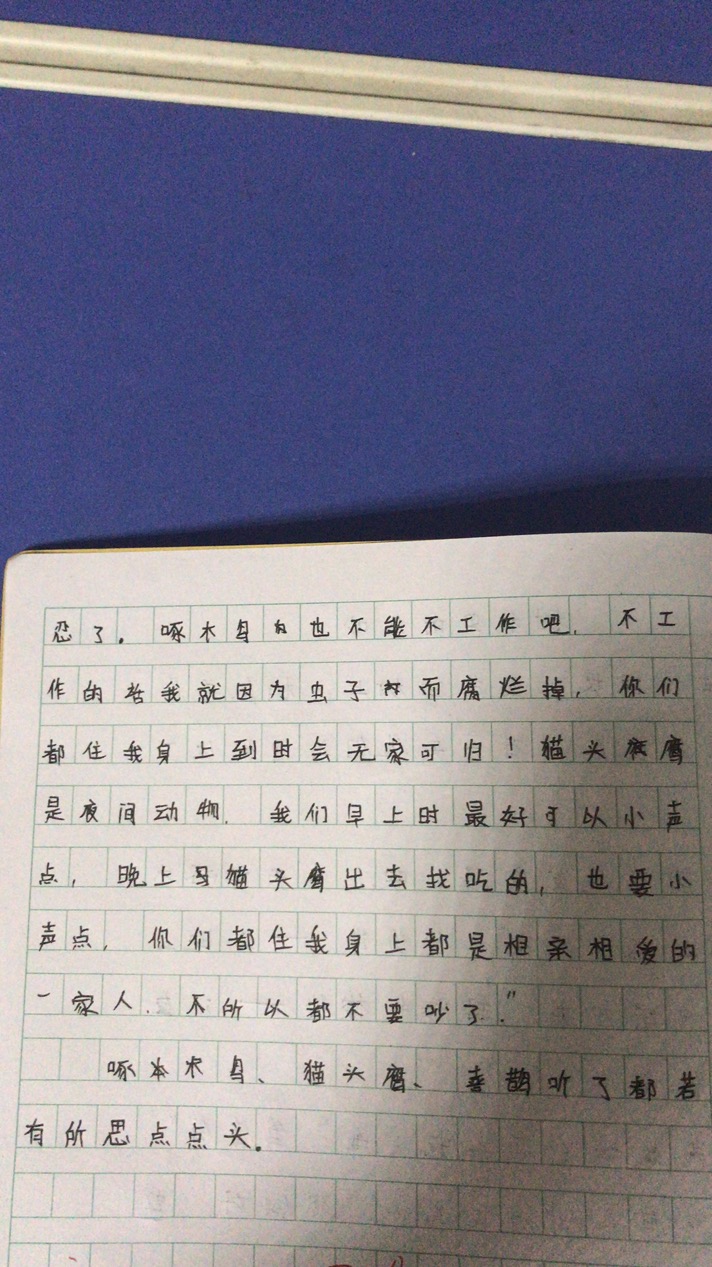 忍了。啄木鸟也不能不工作吧,不工
作的话我就因为虫子而腐烂掉,你们
都住我身上到时会无家可归!猫头鹰
是夜间动物,我们早上时最好可以小声
点,晚上猫头鹰出去找吃的,也要小
声点,你们都住我身上都是相亲相爱的
一家人.不所以都不要吵了."
啄木鸟、猫头鹰、喜鹊听了都若
有所思点点头。